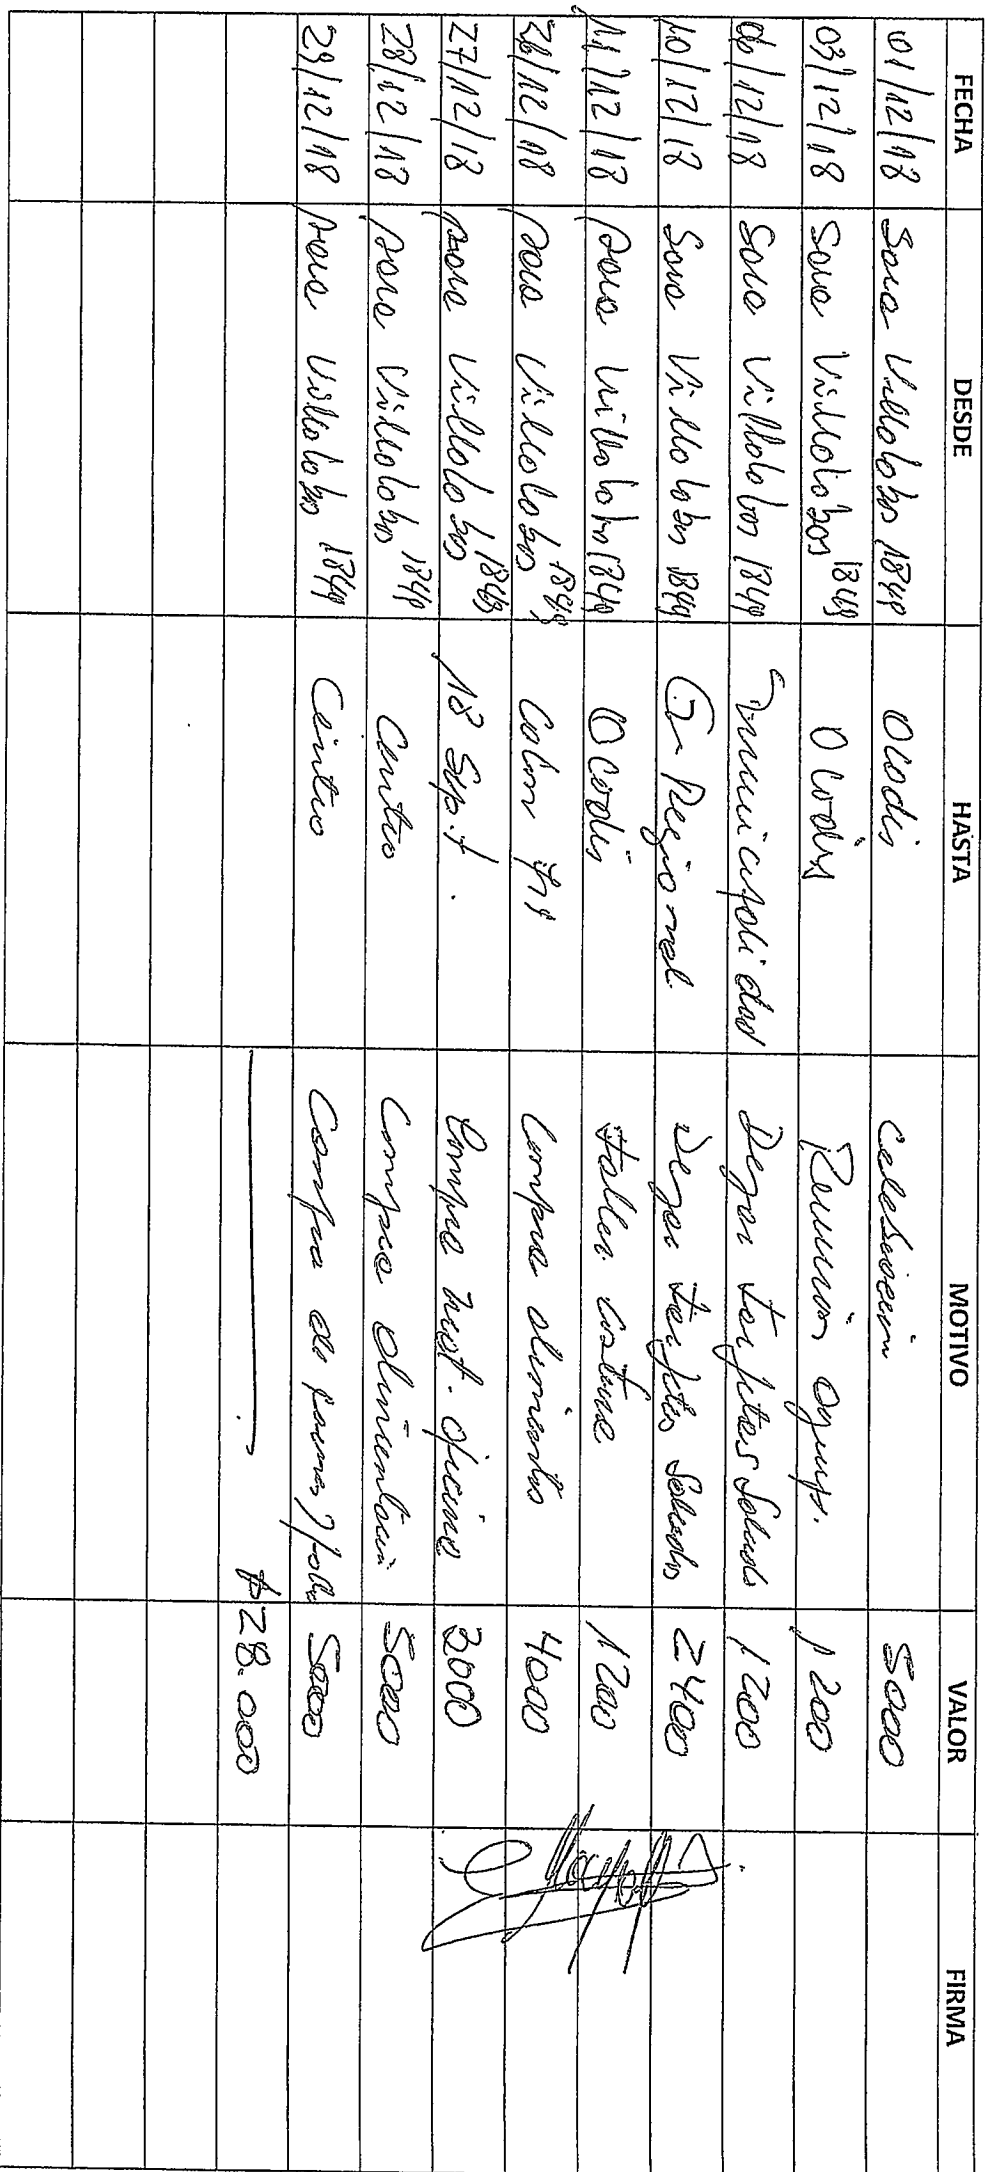 FECHA DESDE HASTA MOTIVO VALOR FIRMA
01/12/18 Sara Villalobos 1849 Ocodis Celebración 5000
03/12/18 Sara Villalobos 1849 Ocodis Reunión agrup. 1200
06/12/18 Sara Villalobos 1849 Municipalidad Dejar tarjetas Saludo 1200
10/12/18 Sara Villalobos 1849 Regional. Dejar tarjetas Saludos 2400
11/12/18 Sara Villalobos 1849 Ocodis Taller costura 1200
26/12/18 Sara Villalobos 1849 Colon Compra alimentos 4000
27/12/18 Sara Villalobos 1849 18 Sept. Compra mat. oficina 3000
28/12/18 Sara Villalobos 1849 Centro Compra 5000
29/12/18 Sara Villalobos 1849 Centro Compra de 5000
$28.000